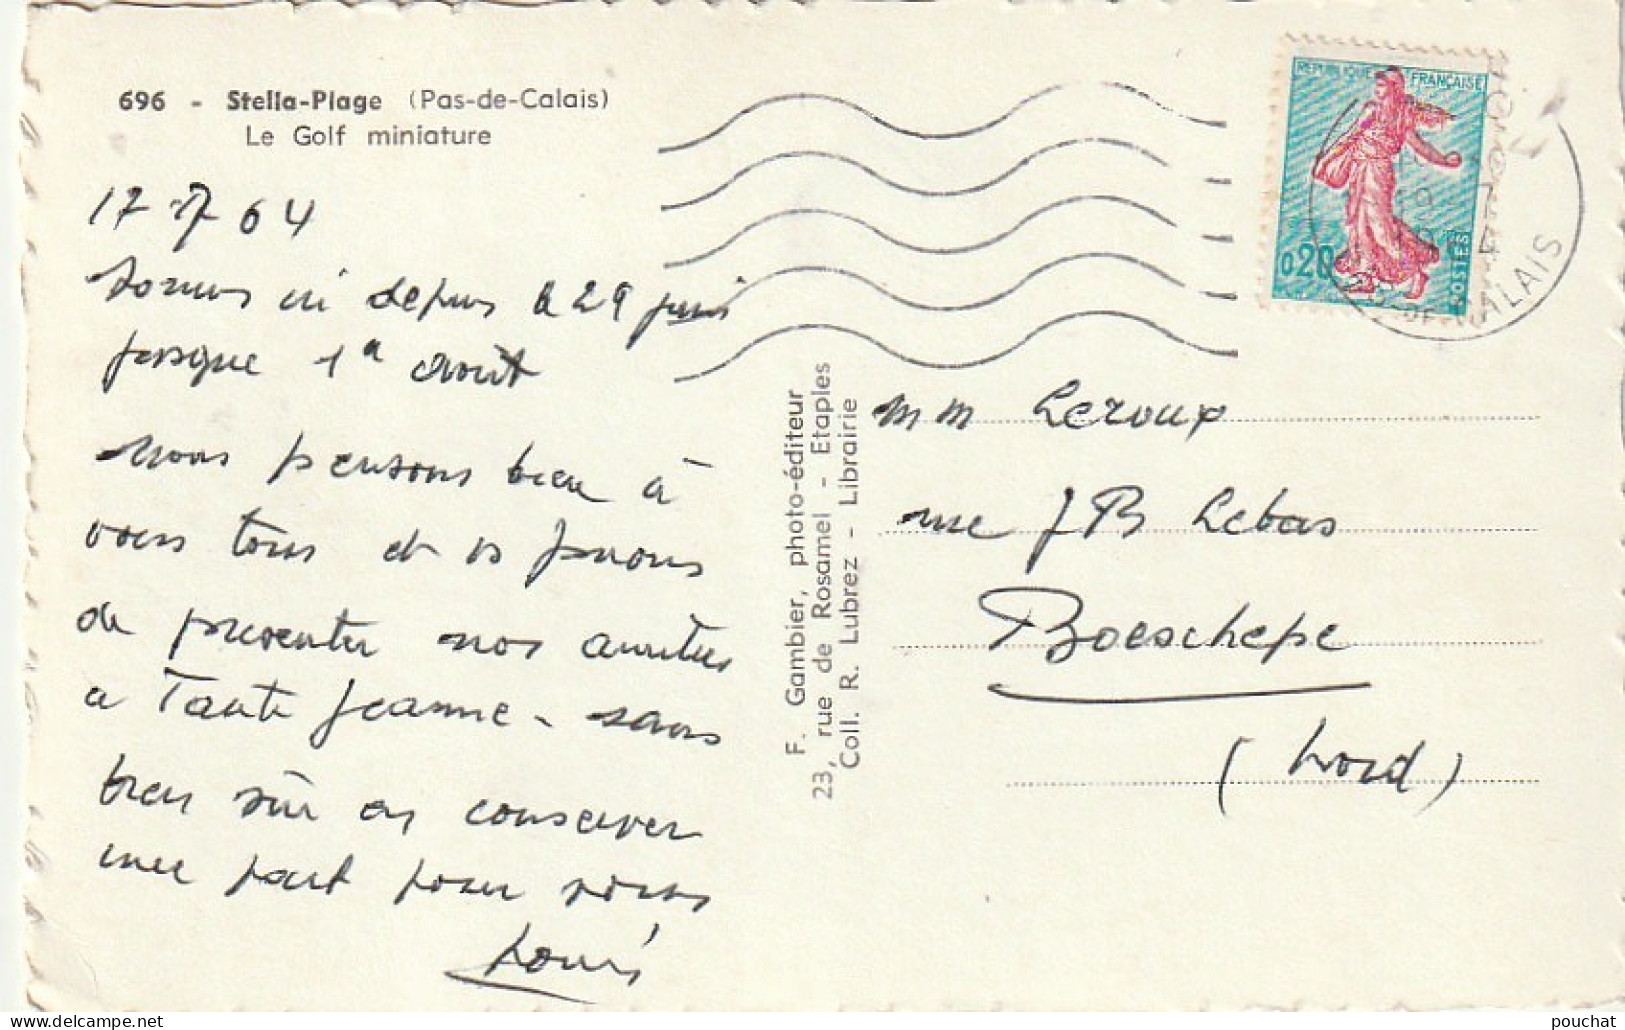 696 - Stella-Plage (Pas-de-Calais)
Le Golf miniature
17-7 64
Sommes ici depuis le 29 juin
jusque 1er août
nous pensons bien à
vous tous et vs prions
de présenter nos amitiés
a Tante Jeanne - sans
bien sûr en conserver
une part pour vous
Louis
F. Gambier, photo-éditeur
23, rue de Rosamel - Etaples
Coll. R. Lubrez - Librairie
REPUBLIQUE FRANÇAISE
0,20
POSTES
DE-CALAIS
mm Leroux
rue JB Lebas
Boeschepe
(Nord)
www.delcampe.net
pouchat